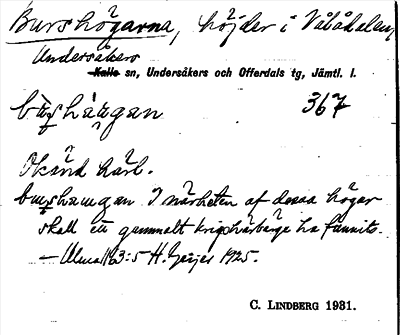 Burshögarna, höjder i Vålådalen,
Undersåkers
Kalls sn, Undersåkers och Offerdals tg, Jämtl. l.
367
Okänd härl.
I närheten af dessa högar
skall ett gammalt krigshärbärge ha funnits.
H. Geijer 1925.
C. LINDBERG 1931.